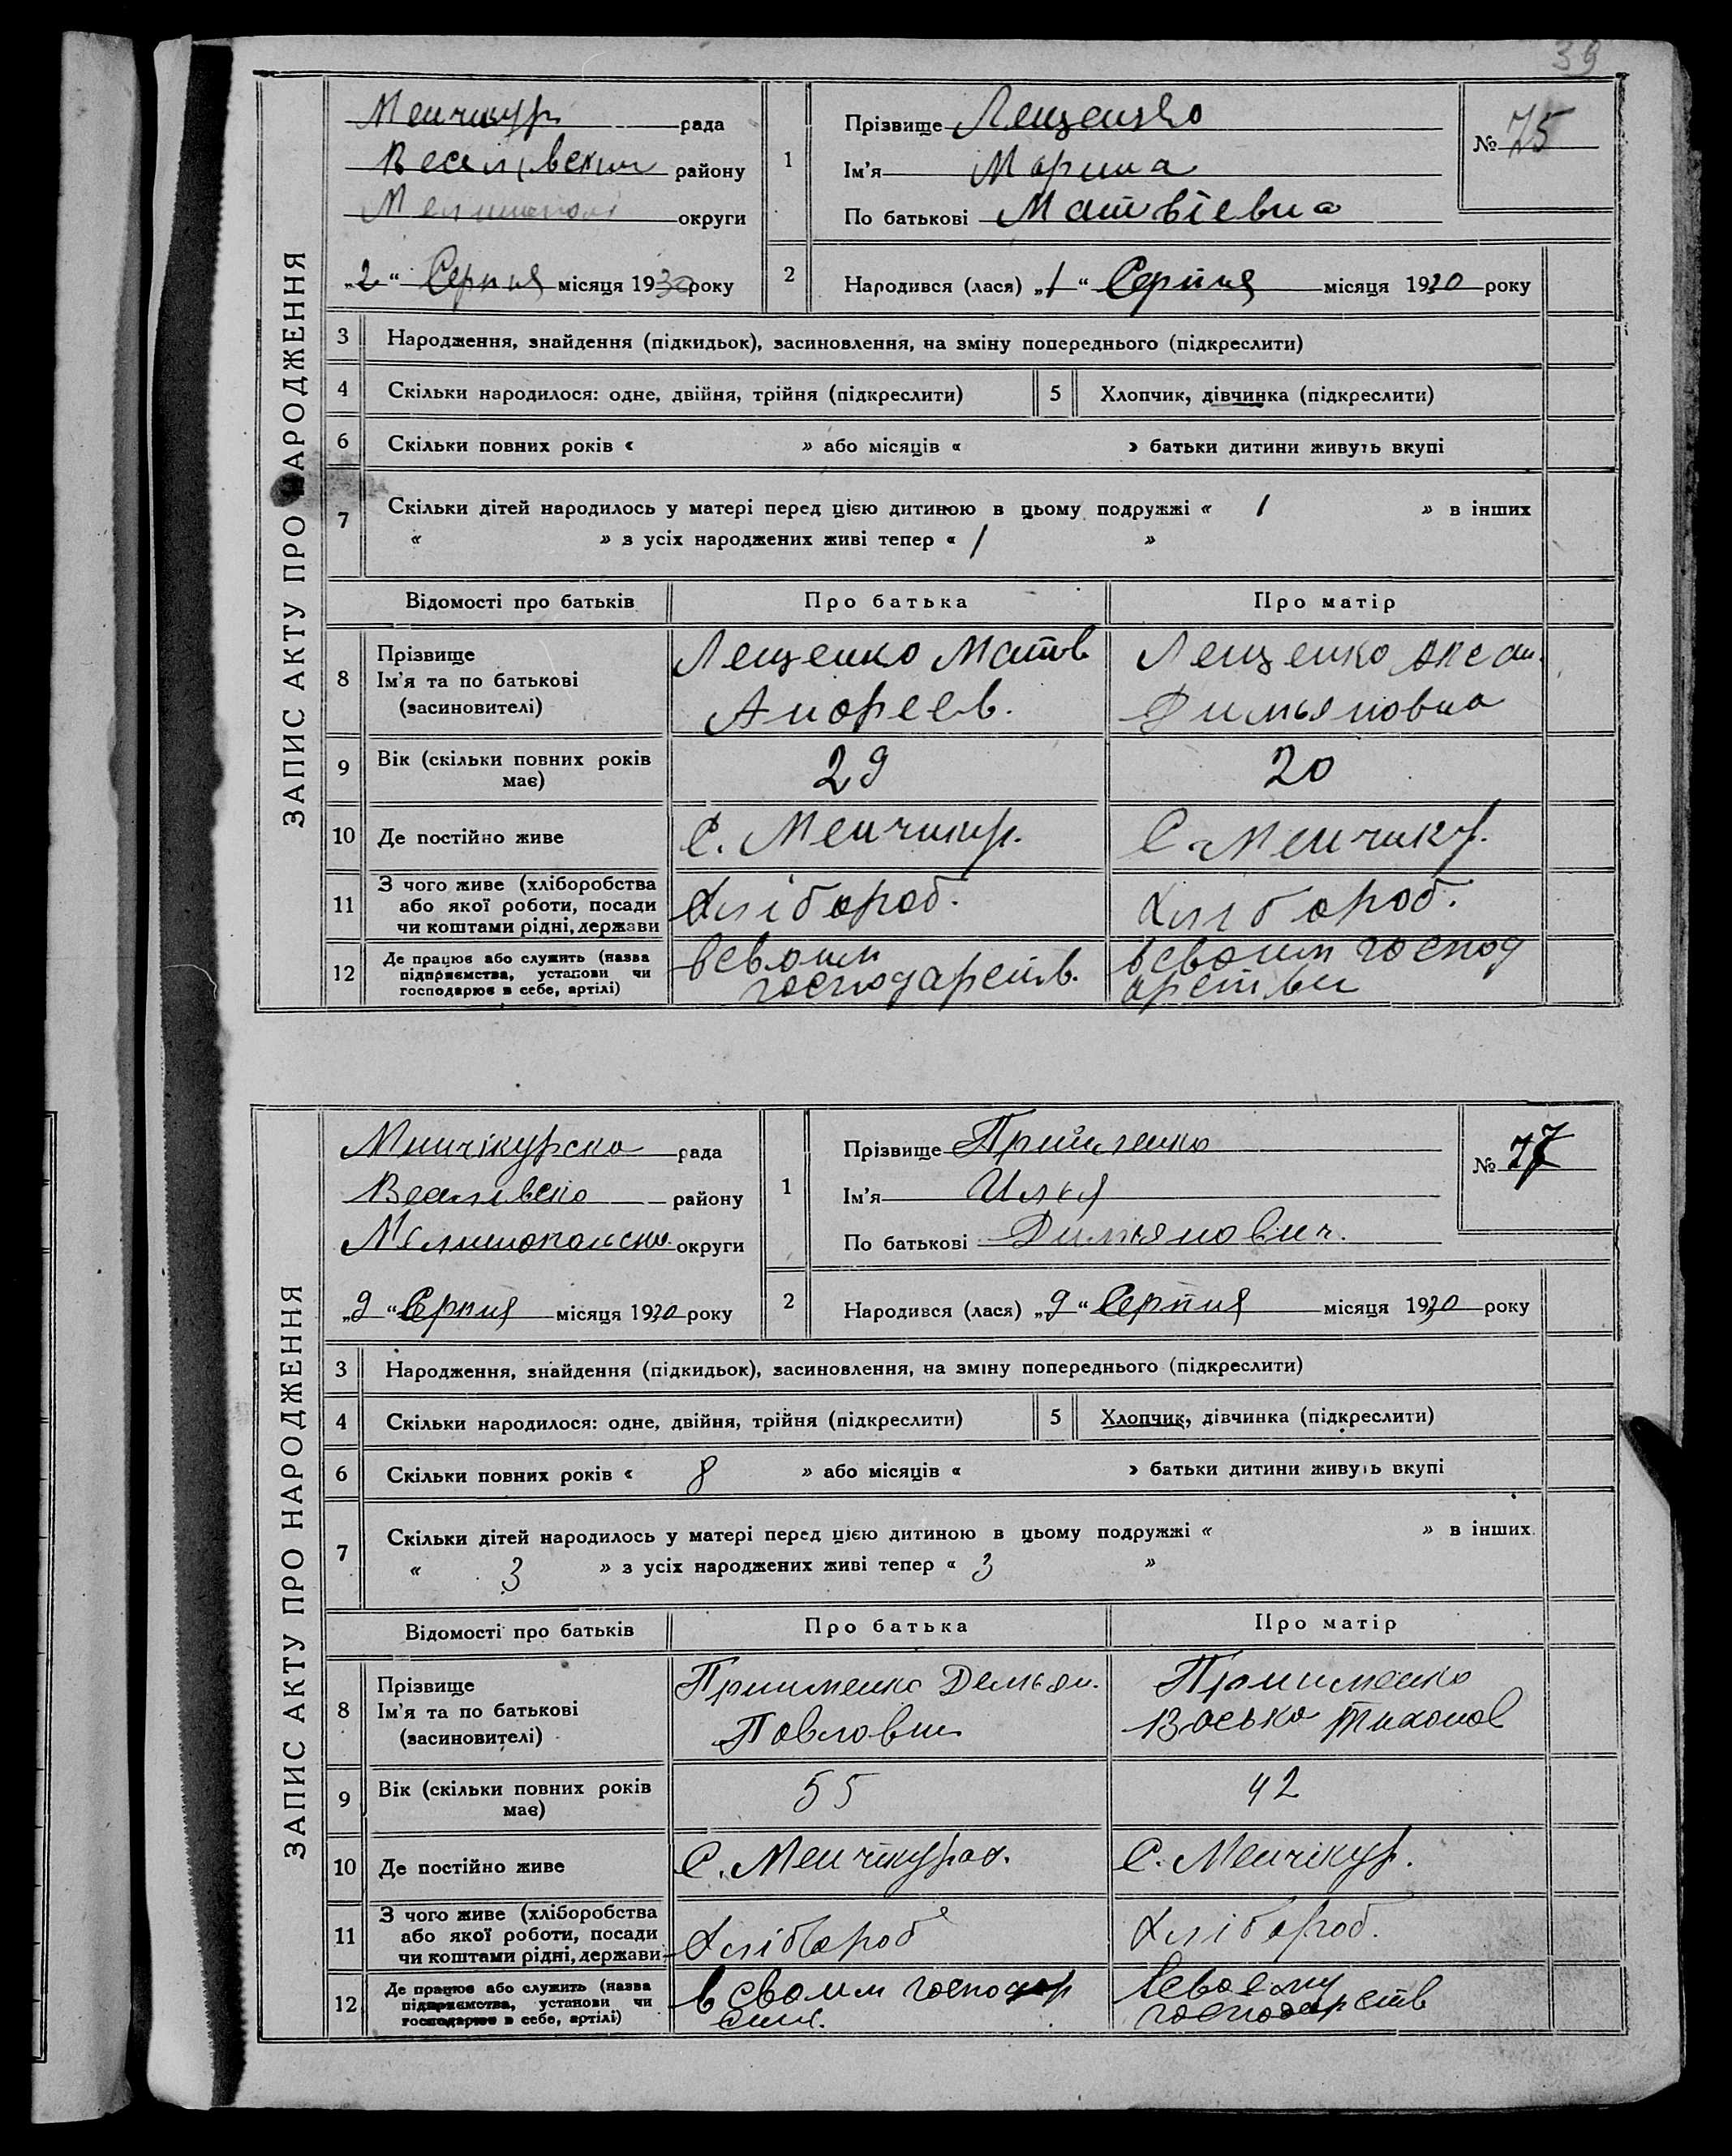 39
ЗАПИС АКТУ ПРО НАРОДЖЕННЯ
Менчикур рада
Веселівским району
Мелитопол округи
„2“ Серпня місяця 1930 року
1
Прізвище Лещенко
Ім'я Марина
По батькові Матвіевна
№ 75
2
Народився (лася) „1“ Серпня місяця 1930 року
3 Народження, знайдення (підкидьок), засиновлення, на зміну попереднього (підкреслити)
4 Скільки народилося: одне, двійня, трійня (підкреслити) 5 Хлопчик, дівчинка (підкреслити)
6 Скільки повних років « » або місяців « » батьки дитини живуть вкупі
7 Скільки дітей народилось у матері перед цією дитиною в цьому подружжі « 1 » в інших
« » з усіх народжених живі тепер « 1 »
Відомості про батьків Про батька Про матір
8 Прізвище
Ім'я та по батькові
(засиновителі)
Лещенко Матв
Андреев.
Лещенко Оксан.
Димьяновна
9 Вік (скільки повних років
має)
29
20
10 Де постійно живе
С. Менчикур.
С. Менчикур.
11 З чого живе (хліборобства
або якої роботи, посади
чи коштами рідні, держави
Хлібороб.
Хлібороб.
12 Де працює або служить (назва
підприємства, установи чи
господарює в себе, артілі)
в своим
господарств.
в своим господ
арстви
ЗАПИС АКТУ ПРО НАРОДЖЕННЯ
Минчікурска рада
Веселівско району
Мелитопольско округи
„9“ Серпня місяця 1930 року
1
Прізвище Прийменко
Ім'я Илья
По батькові Димянович.
№ 77
2
Народився (лася) „9“ Серпня місяця 1930 року
3 Народження, знайдення (підкидьок), засиновлення, на зміну попереднього (підкреслити)
4 Скільки народилося: одне, двійня, трійня (підкреслити) 5 Хлопчик, дівчинка (підкреслити)
6 Скільки повних років « 8 » або місяців « » батьки дитини живуть вкупі
7 Скільки дітей народилось у матері перед цією дитиною в цьому подружжі « » в інших
« 3 » з усіх народжених живі тепер « 3 »
Відомості про батьків Про батька Про матір
8 Прізвище
Ім'я та по батькові
(засиновителі)
Прийменко Демьян.
Павлович
Прийменко
Васько Тихонов
9 Вік (скільки повних років
має)
55
42
10 Де постійно живе
С. Менчікурах.
С. Менчікур.
11 З чого живе (хліборобства
або якої роботи, посади
чи коштами рідні, держави
Хлібороб
Хлібороб.
12 Де працює або служить (назва
підприємства, установи чи
господарює в себе, артілі)
в своим господар
в своему
господарств